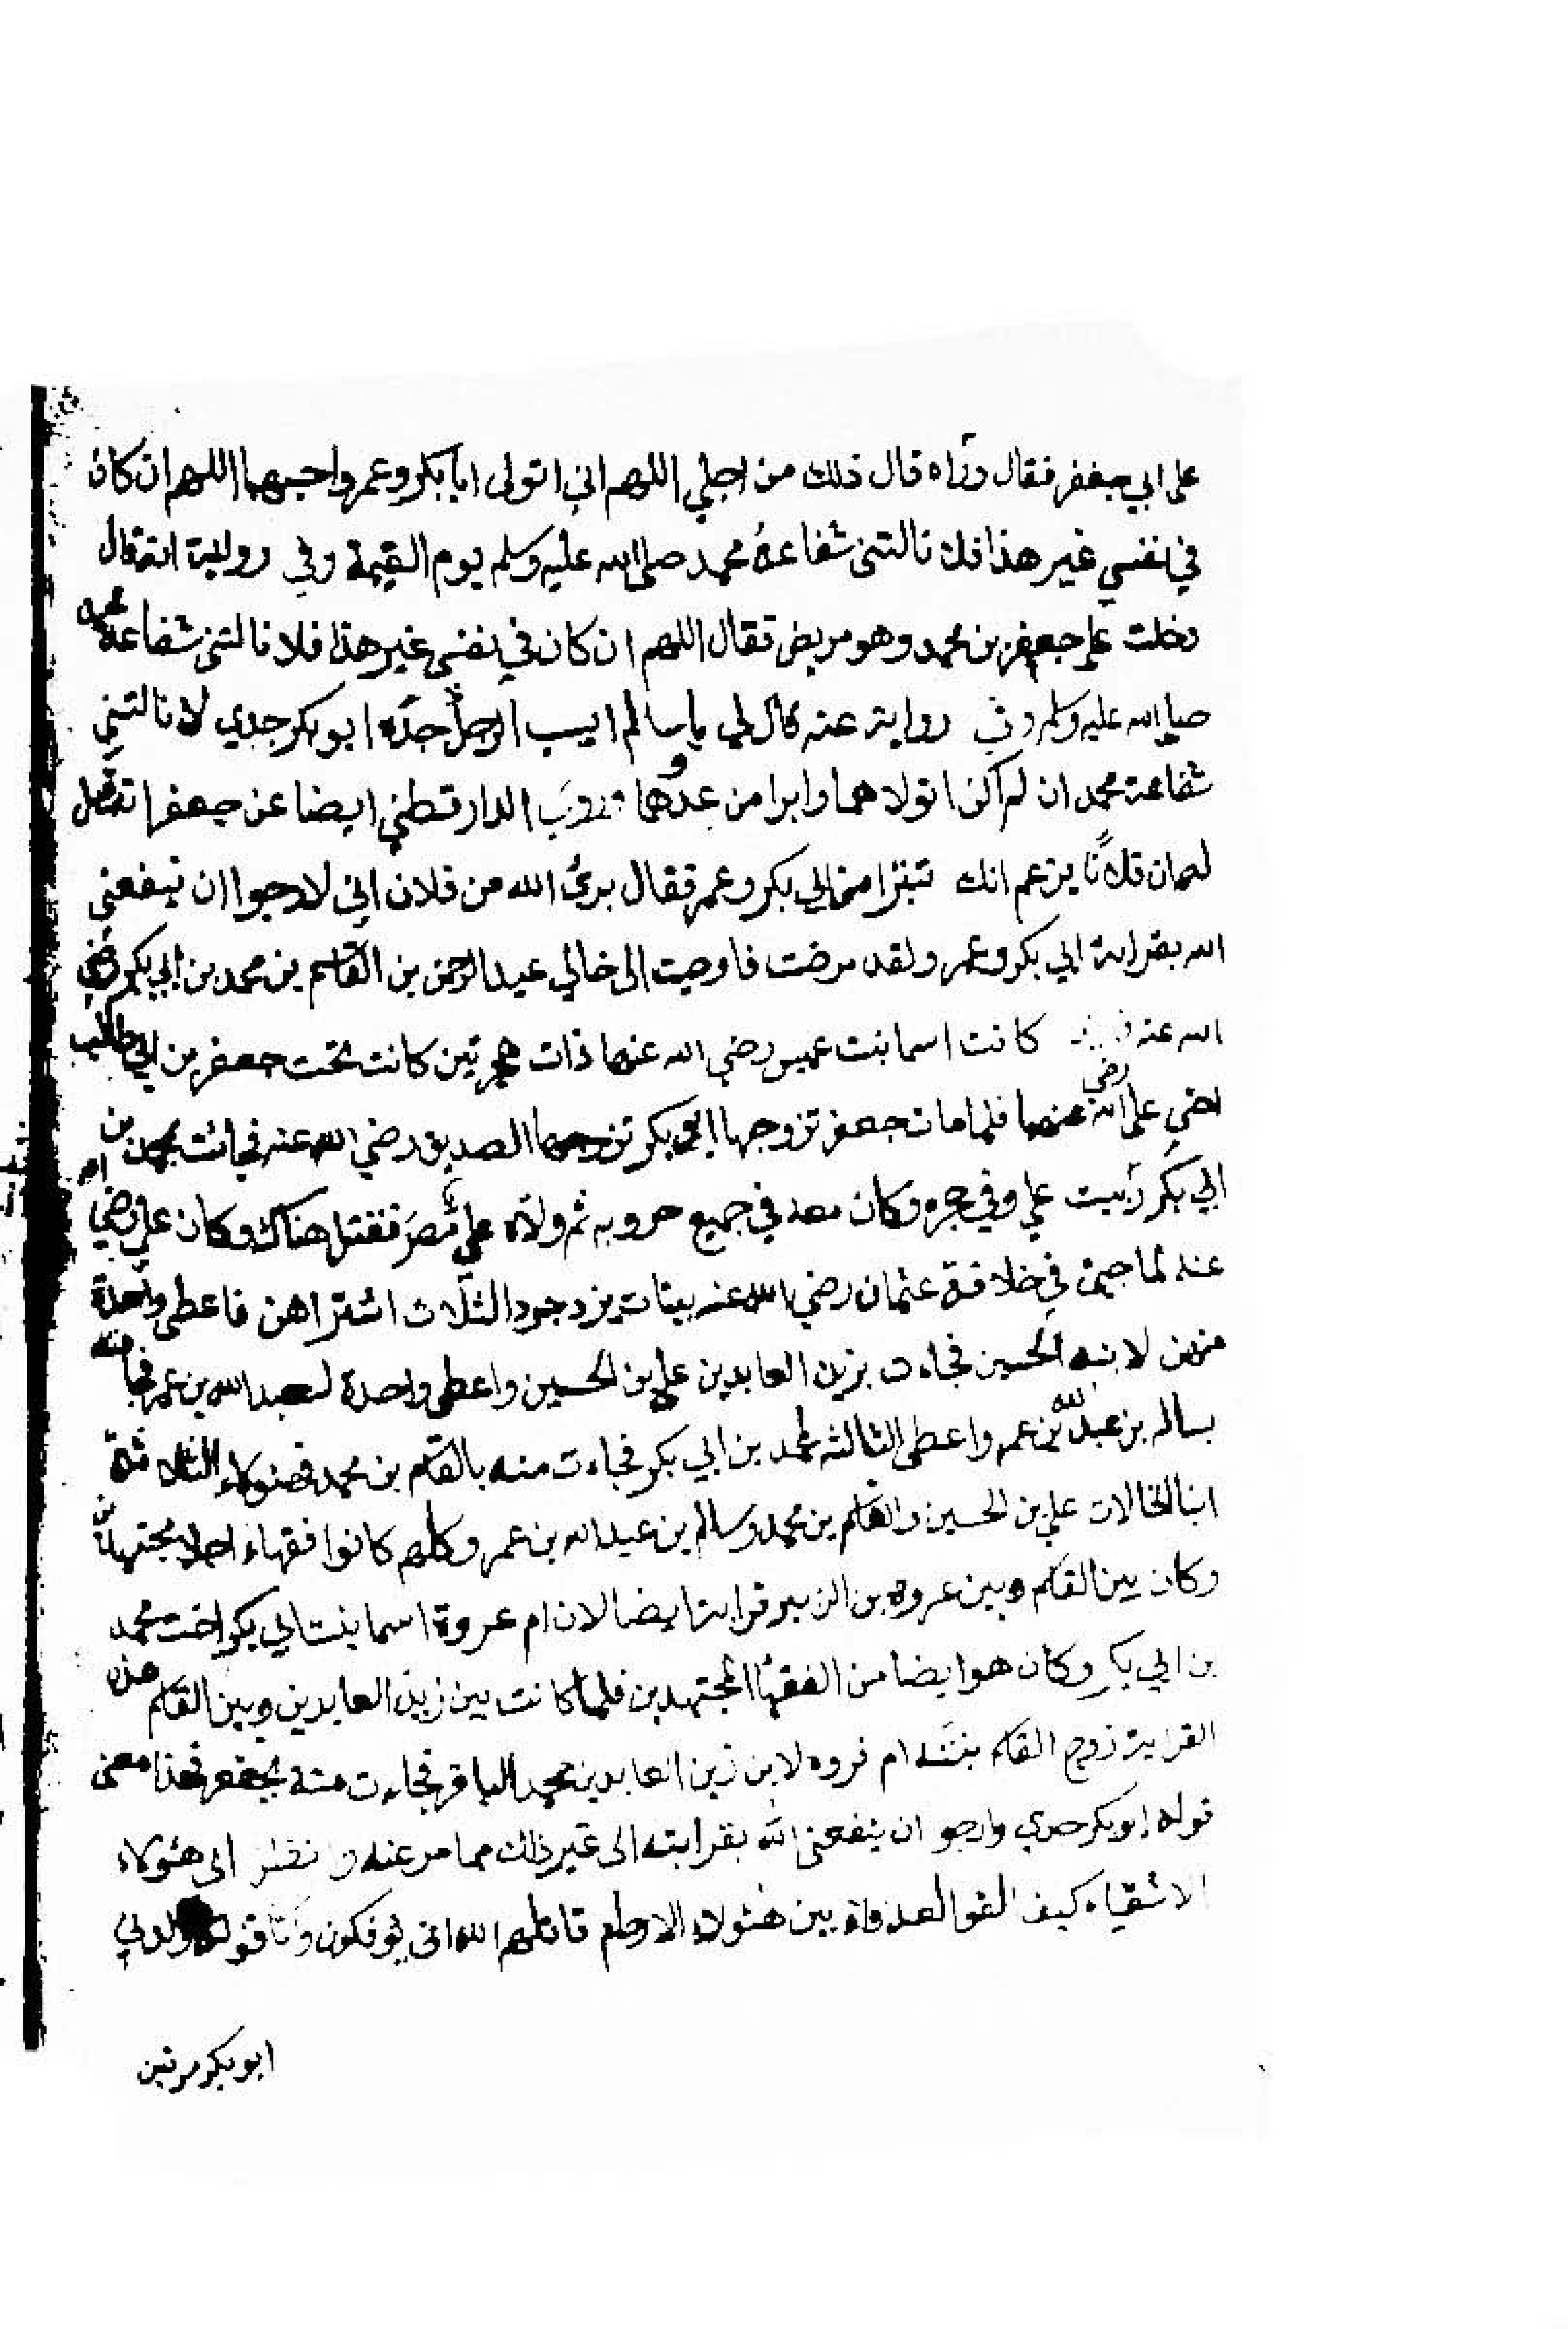 على ابي جعفر فقال وراه قال ذلك من اجلي اللهم اني اتولى ابا بكر وعمر واحبهما اللهم ان كان
في نفسي غير هذا فلا نالتني شفاعة محمد صلى الله عليه وسلم يوم القيمة وفي رواية انه قال
دخلت على جعفر بن محمد وهو مريض فقال اللهم ان كان في نفسي غير هذا فلا نالتني شفاعة محمد
صلى الله عليه وسلم وفي رواية عنه قال لي يا سالم ايسب الرجل جده ابو بكر جدي لا نالتني
شفاعة محمد ان لم اكن اتولاهما وابرا من عدوهما وروى الدارقطني ايضا عن جعفر انه قيل
له ان فلانا يزعم انك تتبرا من ابي بكر وعمر فقال برئ الله من فلان اني لارجوا ان ينفعني
الله بقرابة ابي بكر وعمر ولقد مرضت فاوصيت الى خالي عبد الرحمن بن القاسم بن محمد بن ابي بكر رضي
الله عنه كانت اسما بنت عميس رضي الله عنها ذات هجرتين كانت تحت جعفر بن ابي طالب
اخي علي رضي الله عنهما فلما مات جعفر تزوجها ابو بكر الصديق رضي الله عنه فجائت بمحمد بن
ابي بكر ربيت علي وفي حجره وكان معه في جميع حروبه ثم ولاه على مصر فقتل هناك وكان علي رضي الله
عنه لما جيئ في خلافة عثمان رضي الله عنه ببنات يزدجرد الثلاث اشتراهن فاعطى واحدة
منهن لابنه الحسين فجاءت بزين العابدين علي بن الحسين واعطى واحدة لعبد الله بن عمر فجا منه
بسالم بن عبد الله بن عمر واعطى الثالثه لمحمد بن ابي بكر فجاءت منه بالقاسم بن محمد فهولاء الثلاثة
ابنا الخالات علي بن الحسين والقاسم بن محمد وسالم بن عبد الله بن عمر وكلهم كانوا فقهاء اجلا مجتهدين
وكان بين القاسم وبين عروه بن الزبير قرابة ايضا لان ام عروة اسما بنت ابي بكر اخت محمد
بن ابي بكر وكان هو ايضا من الفقها المجتهدين فلما كانت بين زين العابدين وبين القاسم هذه
القرابة زوج القاسم بنته ام فروه لابن زين العابدين محمد الباقر فجاءت منه بجعفر فهذا معنى
قوله ابو بكر جدي وارجو ان ينفعني الله بقرابته الى غير ذلك مما مر عنه وانظر الى هئولاء
الاشقياء كيف القوا العداوة بين هئولاء الارحام قاتلهم الله انى يوفكون واما قوله ولدني
ابو بكر مرتين